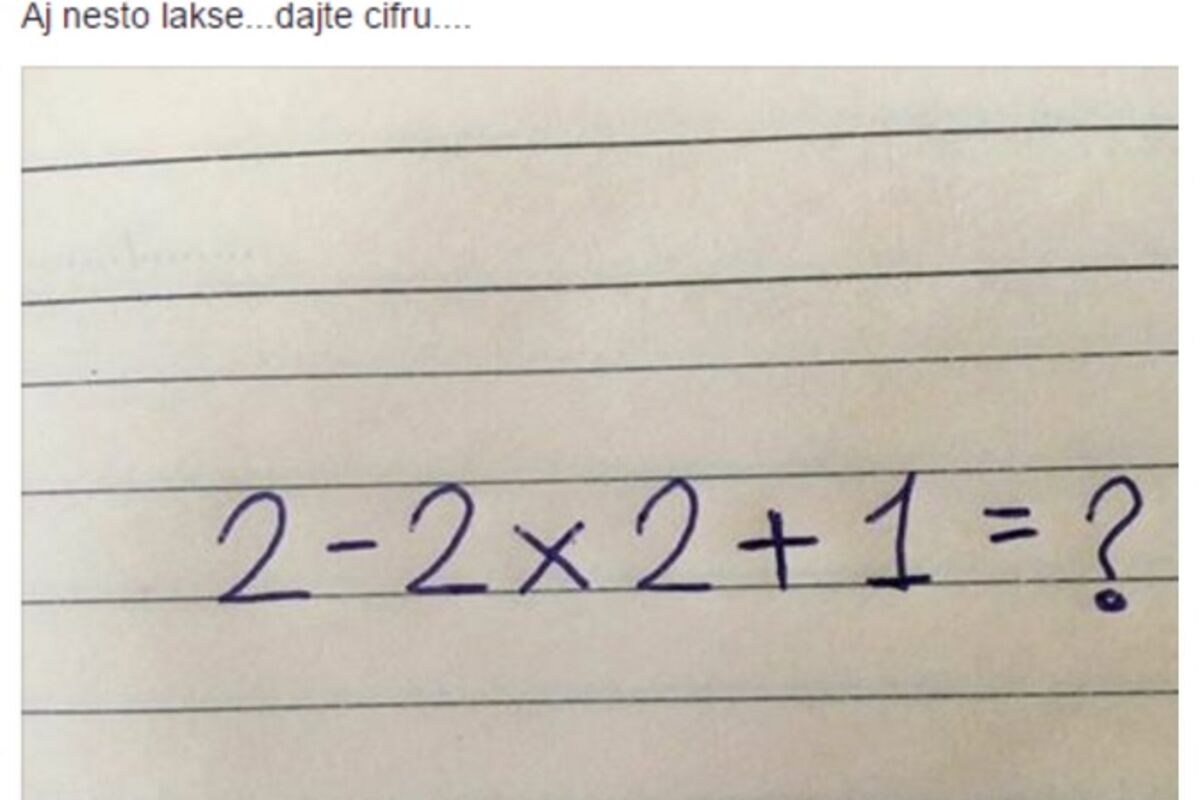 Aj nesto lakse...dajte cifru....
2-2x2+1=?